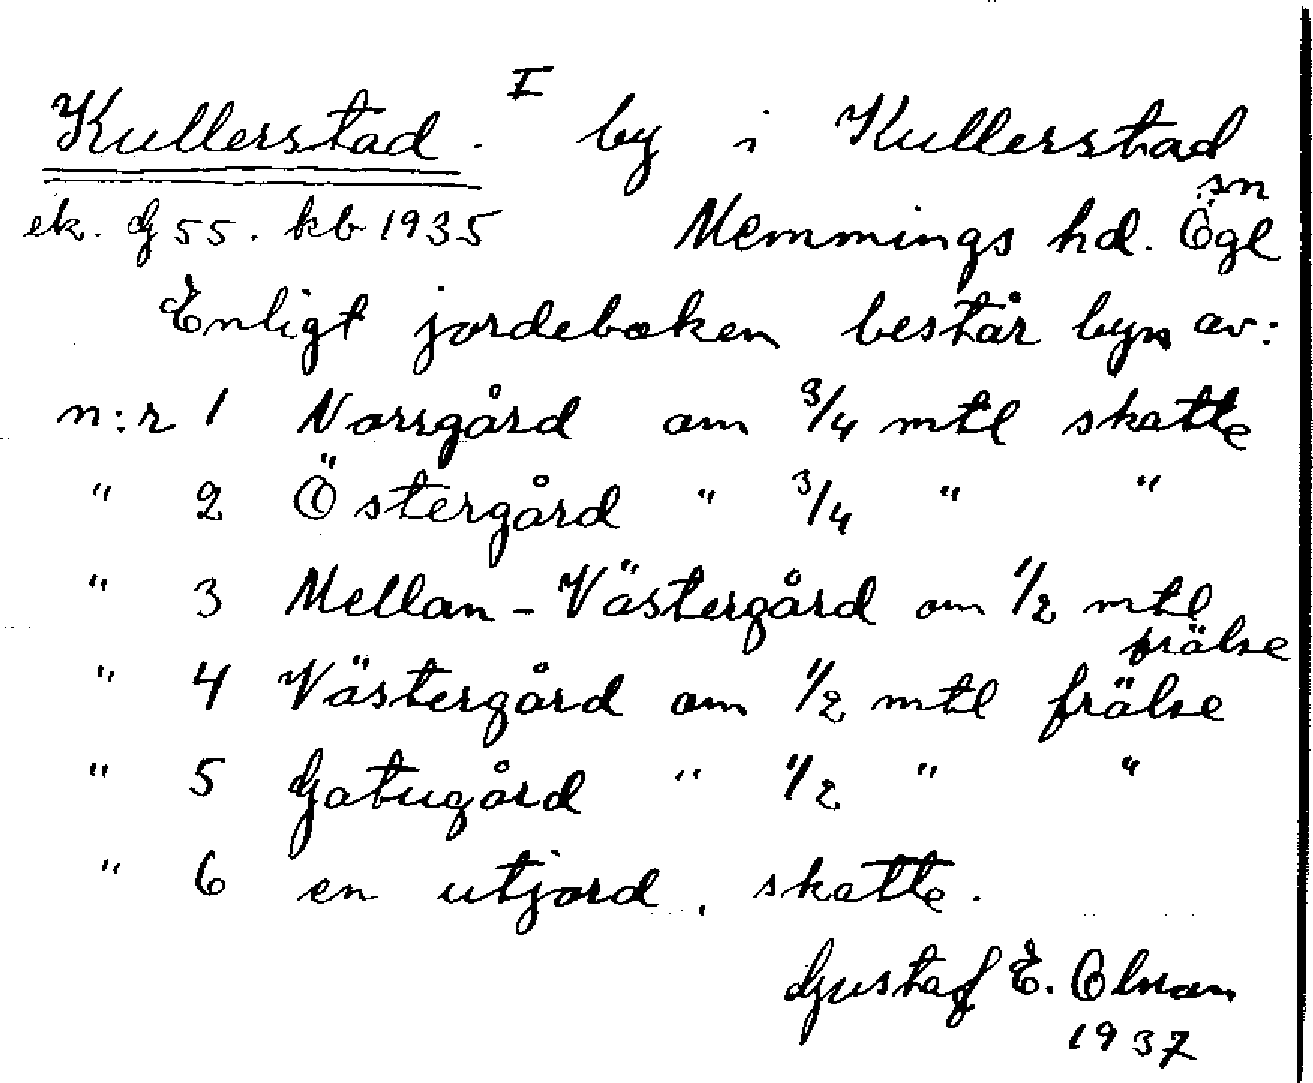 Kullerstad. I by i Kullerstad sn
ek. G 55. kb 1935 Memmings hd. Ögl
Enligt jordeboken består byn av:
n:r 1 Norrgård om 3/4 mtl skatte
" 2 Östergård " 3/4 " "
" 3 Mellan-Västergård om 1/2 mtl frälse
" 4 Västergård om 1/2 mtl frälse
" 5 Gatugård " 1/2 " "
" 6 en utjord, skatte.
Gustaf E.
1937